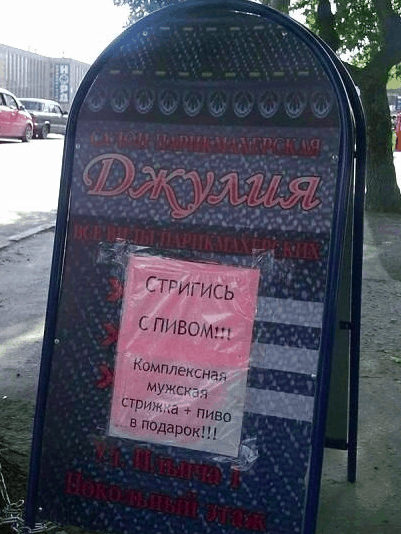 САЛОН ПАРИКМАХЕРСКАЯ
Джулия
ВСЕ ВИДЫ ПАРИКМАХЕРСКИХ
СТРИГИСЬ
С ПИВОМ!!!
Комплексная
мужская
стрижка + пиво
в подарок!!!
Ул. Ильича 1
Цокольный этаж